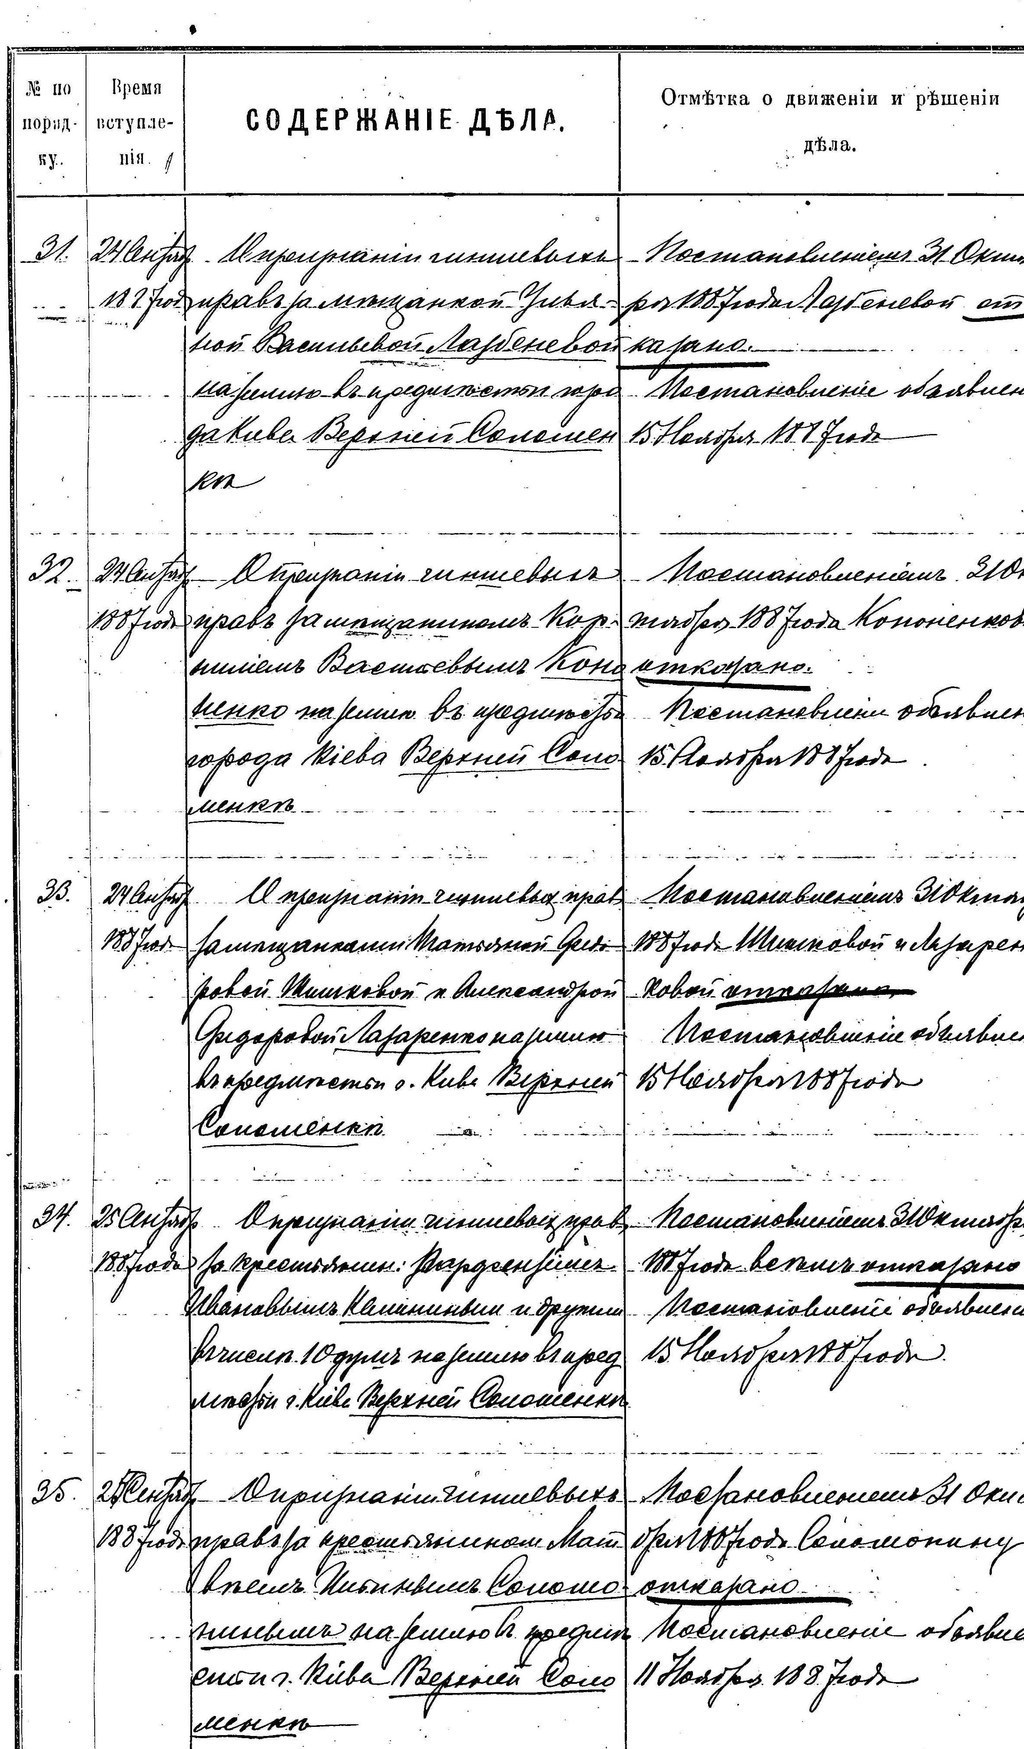 № по порядку.
Время вступленія.
СОДЕРЖАНІЕ ДѢЛА.
Отмѣтка о движеніи и рѣшеніи
дѣла.
31.
24 Сентяб
1887 года
О признаніи чиншевыхъ
правъ за мѣщанкой Улья-
ной Васильевой Лазбеневой
на землю въ предмѣстьи горо
да Кіева Верхней Соломен
кѣ
Постановленіемъ 31 Октя
бря 1887 года Лазбеневой от
казано.
Постановленіе объявлен
15 Ноября 1887 года
32.
24 Сентяб
1887 года
О признаніи чиншевыхъ
правъ за мѣщаниномъ Кор-
ниліемъ Васильевымъ Коно
ненко на землю въ предмѣстьи
города Кіева Верхней Соло
менкѣ
Постановленіемъ 31 Ок
тября 1887 года Кононенков
отказано.
Постановлені объявлен
15 Ноября 1887 года
33.
24 Сентяб
1887 года
О признаніи чиншевыхъ правъ
за мѣщанками Татьяной Федо
ровой Шишковой и Александрой
Федоровой Лазаренко на землю
въ предмѣстьи г. Кіева Верхней
Соломенкѣ
Постановленіемъ 31 Октяб
1887 года Шишковой и Лазарен
ковой отказано
Постановленіе объявле
15 Ноября 1887 года
34.
25 Сентяб
1887 года
О признаніи чиншевыхъ правъ
за крестьян:
Ивановымъ Калининым и другими
въ числѣ 10 душъ на землю въ пред
мѣстьи г. Кіева Верхней Соломенкѣ
Постановленіемъ 31 Октябр
1887 года всѣмъ отказано
Постановленіе объявлен
15 Ноября 1887 года.
35.
25 Сентяб
1887 года
О признаніи чиншевыхъ
правъ за крестьяниномъ Мат
вѣемъ Соломо
нинымъ на землю въ предмѣ
стьи г. Кіева Верхней Соло
менкѣ
Постановленіемъ 31 Октя
бря 1887 года Соломонину
отказано
Постановленіе объявле
11 Ноября 1887 года